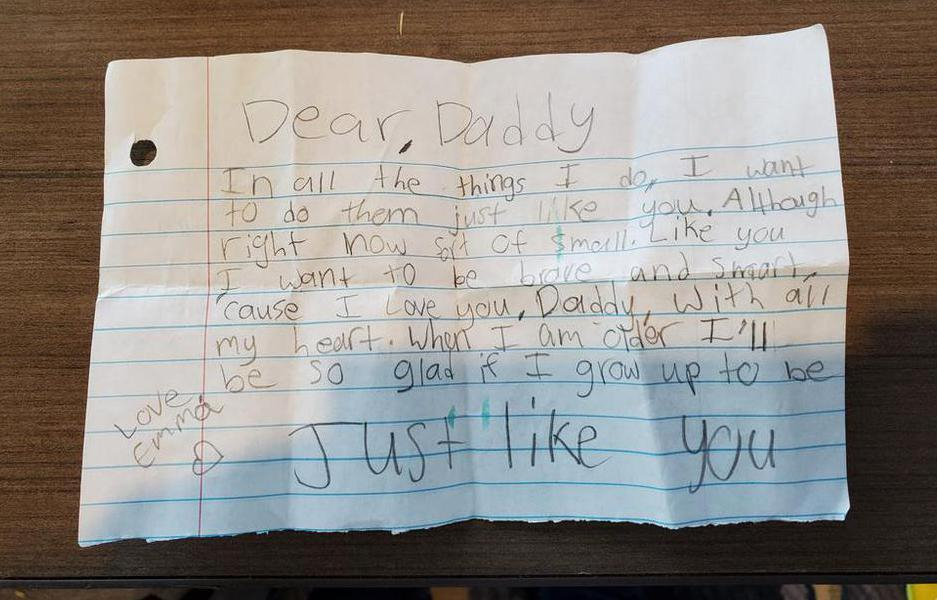 Dear, Daddy
In all the things I do, I want
to do them just like you. Although
right now srt of small. Like you
I want to be brave and smart,
'cause I love you, Daddy, with all
my heart. When I am older I'll
be so glad if I grow up to be
Just like you
Love,
Emma